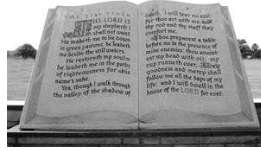 THE LORD IS
my shepherd; I
shall not want
He maketh me to lie down
in green pastures: he leadeth
me beside the still waters.
He restoreth my soul:
he leadeth me in the paths
of righteousness for his
name's sake.
Yea, though I walk through
the valley of the shadow of
death, I will fear no evil:
for thou art with me; thy
rod and thy staff they
comfort me.
Thou preparest a table
before me in the presence of
mine enemies: thou anoint-
est my head with oil; my
cup runneth over.
goodness and mercy shall
follow me all the days of my
life: and I will dwell in the
house of the LORD for ever.